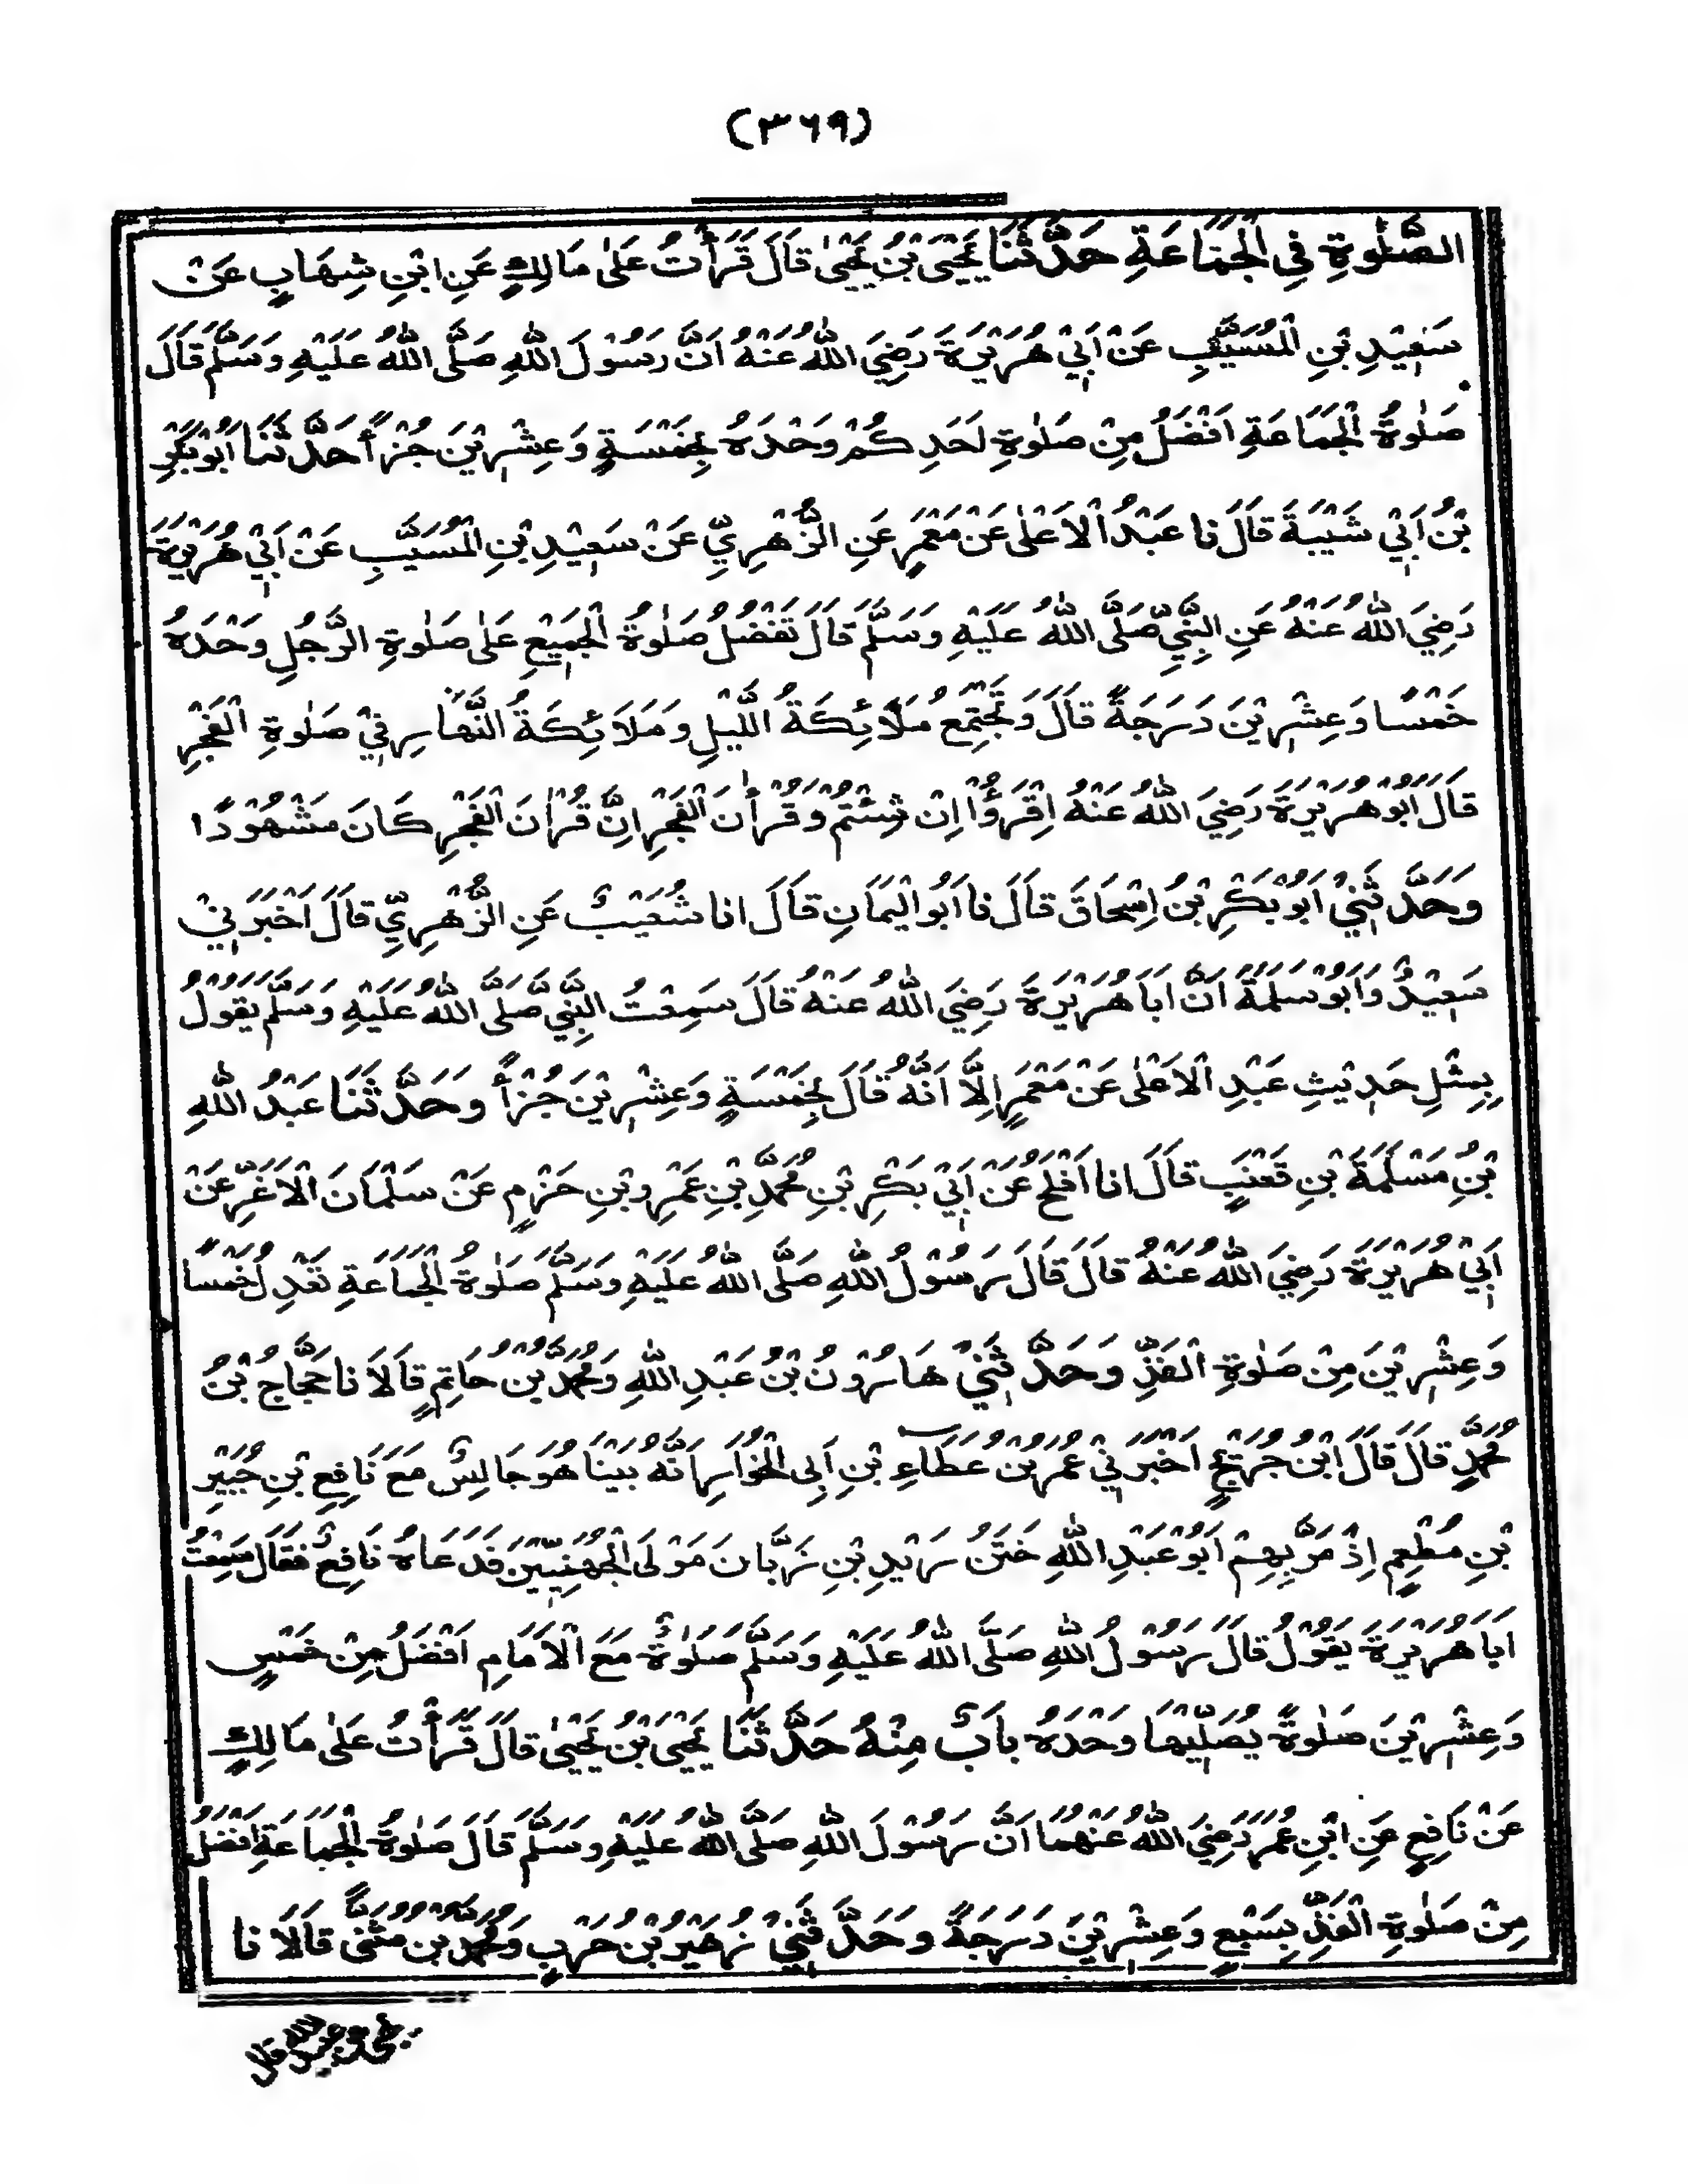 (٣٦٩)
الصَّلٰوةِ فِي الْجَمَاعَةِ حَدَّثَنَا يَحْيَى بْنُ يَحْيٰى قَالَ قَرَأْتُ عَلٰى مَالِكٍ عَنِ ابْنِ شِهَابٍ عَنْ
سَعِيْدِ بْنِ الْمُسَيَّبِ عَنْ اَبِيْ هُرَيْرَةَ رَضِيَ اللّٰهُ عَنْهُ اَنَّ رَسُوْلَ اللّٰهِ صَلَّى اللّٰهُ عَلَيْهِ وَسَلَّمَ قَالَ
صَلٰوةُ الْجَمَاعَةِ اَفْضَلُ مِنْ صَلٰوةِ اَحَدِكُمْ وَحْدَهُ بِخَمْسَةٍ وَعِشْرِيْنَ جُزْأً حَدَّثَنَا اَبُوْبَكْرِ
بْنُ اَبِيْ شَيْبَةَ قَالَ نا عَبْدُ الْاَعْلٰى عَنْ مَعْمَرٍ عَنِ الزُّهْرِيِّ عَنْ سَعِيْدِ بْنِ الْمُسَيَّبِ عَنْ اَبِيْ هُرَيْرَةَ
رَضِيَ اللّٰهُ عَنْهُ عَنِ النَّبِيِّ صَلَّى اللّٰهُ عَلَيْهِ وَسَلَّمَ قَالَ تَفْضُلُ صَلٰوةُ الْجَمِيْعِ عَلٰى صَلٰوةِ الرَّجُلِ وَحْدَهُ
خَمْسًا وَعِشْرِيْنَ دَرَجَةً قَالَ وَتَجْتَمِعُ مَلَائِكَةُ اللَّيْلِ وَمَلَائِكَةُ النَّهَارِ فِيْ صَلٰوةِ الْفَجْرِ
قَالَ اَبُوْ هُرَيْرَةَ رَضِيَ اللّٰهُ عَنْهُ اِقْرَؤُا اِنْ شِئْتُمْ وَقُرْاٰنَ الْفَجْرِ اِنَّ قُرْاٰنَ الْفَجْرِ كَانَ مَشْهُوْدًا
وَحَدَّثَنِيْ اَبُوْ بَكْرِ بْنُ اِسْحَاقَ قَالَ نا اَبُوالْيَمَانِ قَالَ انا شُعَيْبٌ عَنِ الزُّهْرِيِّ قَالَ اَخْبَرَنِيْ
سَعِيْدٌ وَاَبُوْ سَلَمَةَ اَنَّ اَبَا هُرَيْرَةَ رَضِيَ اللّٰهُ عَنْهُ قَالَ سَمِعْتُ النَّبِيَّ صَلَّى اللّٰهُ عَلَيْهِ وَسَلَّمَ يَقُوْلُ
بِمِثْلِ حَدِيْثِ عَبْدِ الْاَعْلٰى عَنْ مَعْمَرٍ اِلَّا اَنَّهُ قَالَ بِخَمْسَةٍ وَعِشْرِيْنَ جُزْأً وَحَدَّثَنَا عَبْدُ اللّٰهِ
بْنُ مَسْلَمَةَ بْنِ قَعْنَبٍ قَالَ انا اَفْلَحُ عَنْ اَبِيْ بَكْرِ بْنِ مُحَمَّدِ بْنِ عَمْرِو بْنِ حَزْمٍ عَنْ سَلْمَانَ الْاَغَرِّ عَنْ
اَبِيْ هُرَيْرَةَ رَضِيَ اللّٰهُ عَنْهُ قَالَ قَالَ رَسُوْلُ اللّٰهِ صَلَّى اللّٰهُ عَلَيْهِ وَسَلَّمَ صَلٰوةُ الْجَمَاعَةِ تَعْدِلُ خَمْسًا
وَعِشْرِيْنَ مِنْ صَلٰوةِ الْفَذِّ وَحَدَّثَنِيْ هَارُوْنُ بْنُ عَبْدِ اللّٰهِ وَمُحَمَّدُ بْنُ حَاتِمٍ قَالَا نا حَجَّاجُ بْنُ
مُحَمَّدٍ قَالَ قَالَ ابْنُ جُرَيْجٍ اَخْبَرَنِيْ عُمَرُ بْنُ عَطَاءِ بْنِ اَبِى الْخُوَارِ اَنَّهُ بَيْنَا هُوَ جَالِسٌ مَعَ نَافِعِ بْنِ جُبَيْرِ
بْنِ مُطْعِمٍ اِذْ مَرَّ بِهِمْ اَبُوْ عَبْدِ اللّٰهِ خَتَنُ زَيْدِ بْنِ زَبَّانَ مَوْلَى الْجُهَنِيِّيْنَ فَدَعَاهُ نَافِعٌ فَقَالَ سَمِعْتُ
اَبَا هُرَيْرَةَ يَقُوْلُ قَالَ رَسُوْلُ اللّٰهِ صَلَّى اللّٰهُ عَلَيْهِ وَسَلَّمَ صَلٰوةٌ مَعَ الْاِمَامِ اَفْضَلُ مِنْ خَمْسٍ
وَعِشْرِيْنَ صَلٰوةً يُصَلِّيْهَا وَحْدَهُ بَابٌ مِنْهُ حَدَّثَنَا يَحْيَى بْنُ يَحْيٰى قَالَ قَرَأْتُ عَلٰى مَالِكٍ
عَنْ نَافِعٍ عَنِ ابْنِ عُمَرَ رَضِيَ اللّٰهُ عَنْهُمَا اَنَّ رَسُوْلَ اللّٰهِ صَلَّى اللّٰهُ عَلَيْهِ وَسَلَّمَ قَالَ صَلٰوةُ الْجَمَاعَةِ اَفْضَلُ
مِنْ صَلٰوةِ الْفَذِّ بِسَبْعٍ وَعِشْرِيْنَ دَرَجَةً وَحَدَّثَنِيْ زُهَيْرُ بْنُ حَرْبٍ وَمُحَمَّدُ بْنُ مُثَنًّى قَالَا نا
يحيى عن عبيد الله قال